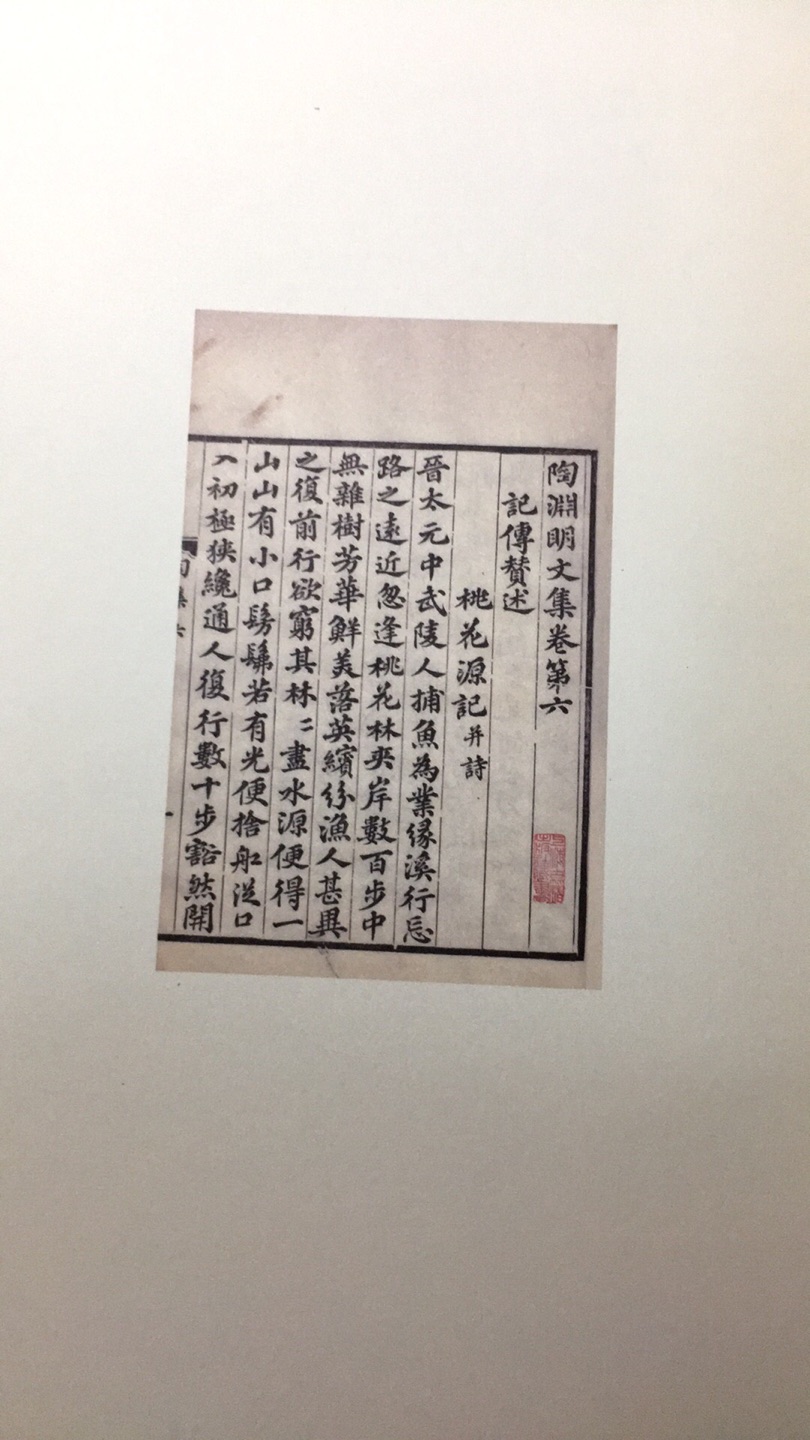 陶淵明文集卷第六
記傳贊述
桃花源記并詩
晉太元中武陵人捕魚為業緣溪行忘
路之遠近忽逢桃花林夾岸數百步中
無雜樹芳華鮮美落英繽紛漁人甚異
之復前行欲窮其林〻盡水源便得一
山山有小口髣髴若有光便捨船從口
入初極狹纔通人復行數十步豁然開